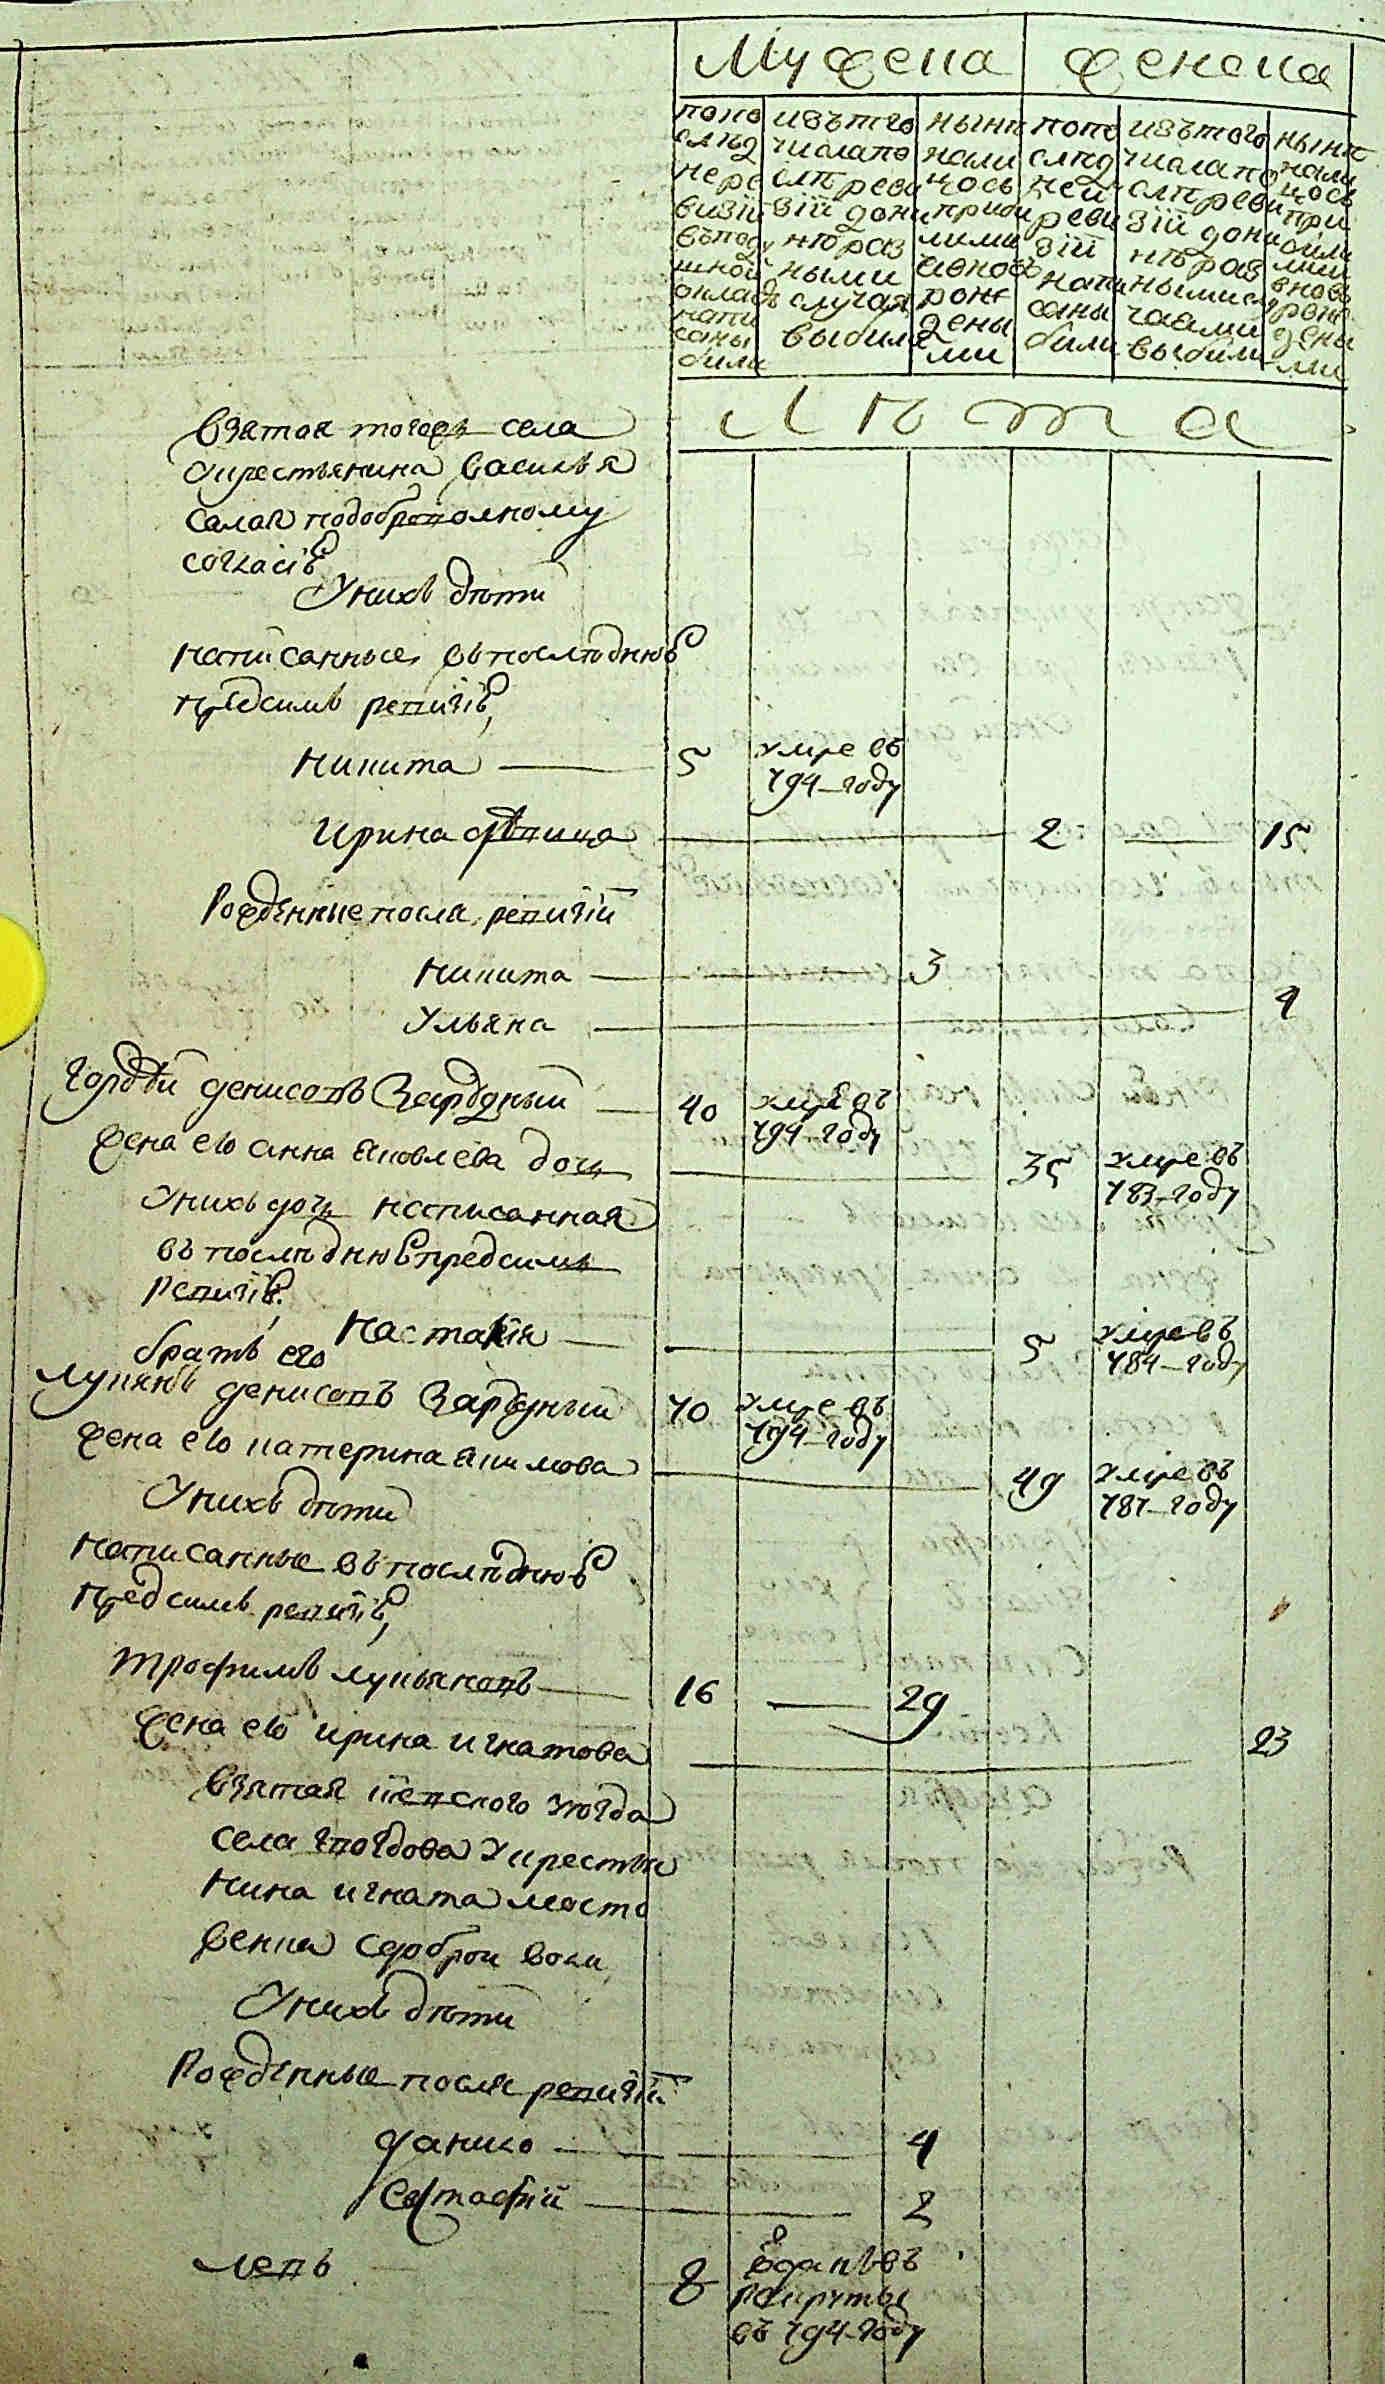 Мужеска женска
попо слѣд нере визіи въподу шной окладъ напи саны были
изътого числапо слѣ реви зіи дони нѣраз ными случая выбыли
нынѣ нали цось приби лими вновь рож дены ми
попо слѣд ней реви зіи напи саны были
изътого числапо слѣ реви зіи дони нѣ раз ными слу чаами выбыли
нынѣ нали цось при были ми вновь рож дены ми
Лѣта
взятая тогожъ села
уирестьянина василья
салая подобреполному
согласію
Унихъ дѣти
написанные въпослѣднюю
предсимъ ревизію
никита 5 умре въ 794 году
Ирина дѣвица 2 15
Рожденные посла ревизіи
никита 3
Ульяна 4
Гордѣй денисовъ Зарудный 40 умре въ 794 году
жена ею анна яковлева дочь 35 умре въ 783 году
Унихъ дочь написанная
въ послѣднюю предсимъ
ревизію
настасія 5 умре въ 784 году
братъ его
лукянъ денисовъ Зарудный 70 умре въ 794 году
жена ею катерина якимова 49 умре въ 787 году
Унихъ дѣти
написанные въ послѣднюю
предсимъ ревизію
трофимъ лукьяновъ 16 29
жена ею ирина игнатова 23
взятая кіевского уѣзда
села уирестья
нина игната мосто
венка сдоброй воли
Унихъ дѣти
Рожденные после ревизіи
данило 4
Евстафій 2
левъ 8 отданъ въ рекруты въ 794 году